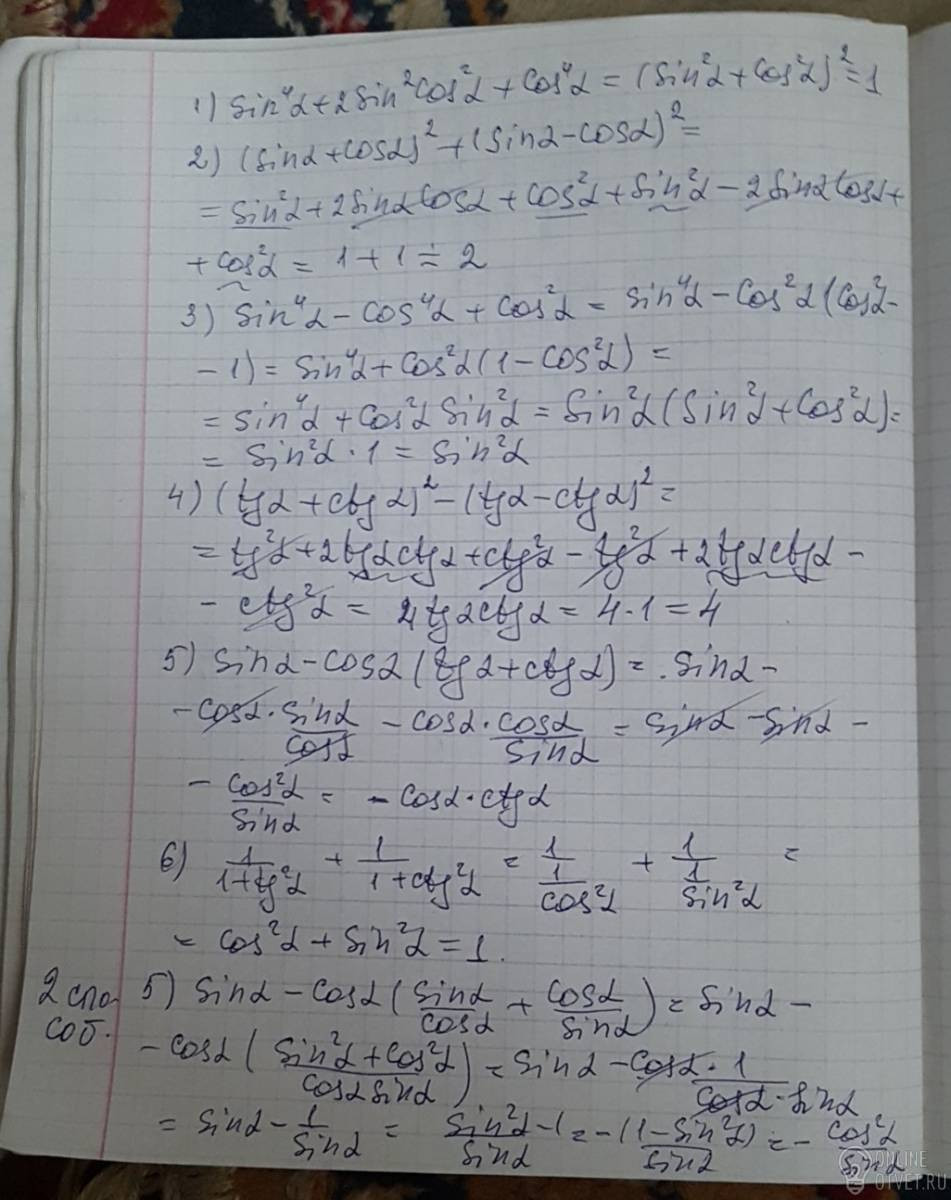 1) sin⁴α + 2sin²cos²α + cos⁴α = (sin²α + cos²α)² = 1
2) (sinα + cosα)² + (sinα - cosα)² =
= sin²α + 2sinαcosα + cos²α + sin²α - 2sinαcosα +
+ cos²α = 1 + 1 = 2
3) sin⁴α - cos⁴α + cos²α = sin⁴α - cos²α(cos²α -
- 1) = sin⁴α + cos²α(1 - cos²α) =
= sin⁴α + cos²α sin²α = sin²α(sin²α + cos²α) =
= sin²α · 1 = sin²α
4) (tgα + ctgα)² - (tgα - ctgα)² =
= tg²α + 2tgαctgα + ctg²α - tg²α + 2tgαctgα -
- ctg²α = 4tgαctgα = 4·1 = 4
5) sinα - cosα(tgα + ctgα) = sinα -
- cosα · sinα/cosα - cosα · cosα/sinα = sinα - sinα -
- cos²α/sinα = - cosα · ctgα
6) 1/(1+tg²α) + 1/(1+ctg²α) = 1/(1/cos²α) + 1/(1/sin²α) =
= cos²α + sin²α = 1.
2 спо 5) sinα - cosα(sinα/cosα + cosα/sinα) = sinα -
соб. - cosα((sin²α + cos²α)/(cosα sinα)) = sinα - cosα · 1/(cosα · sinα)
= sinα - 1/sinα = (sin²α - 1)/sinα = -(1 - sin²α)/sinα = - cos²α/sinα
ONLINE
OTVET.RU